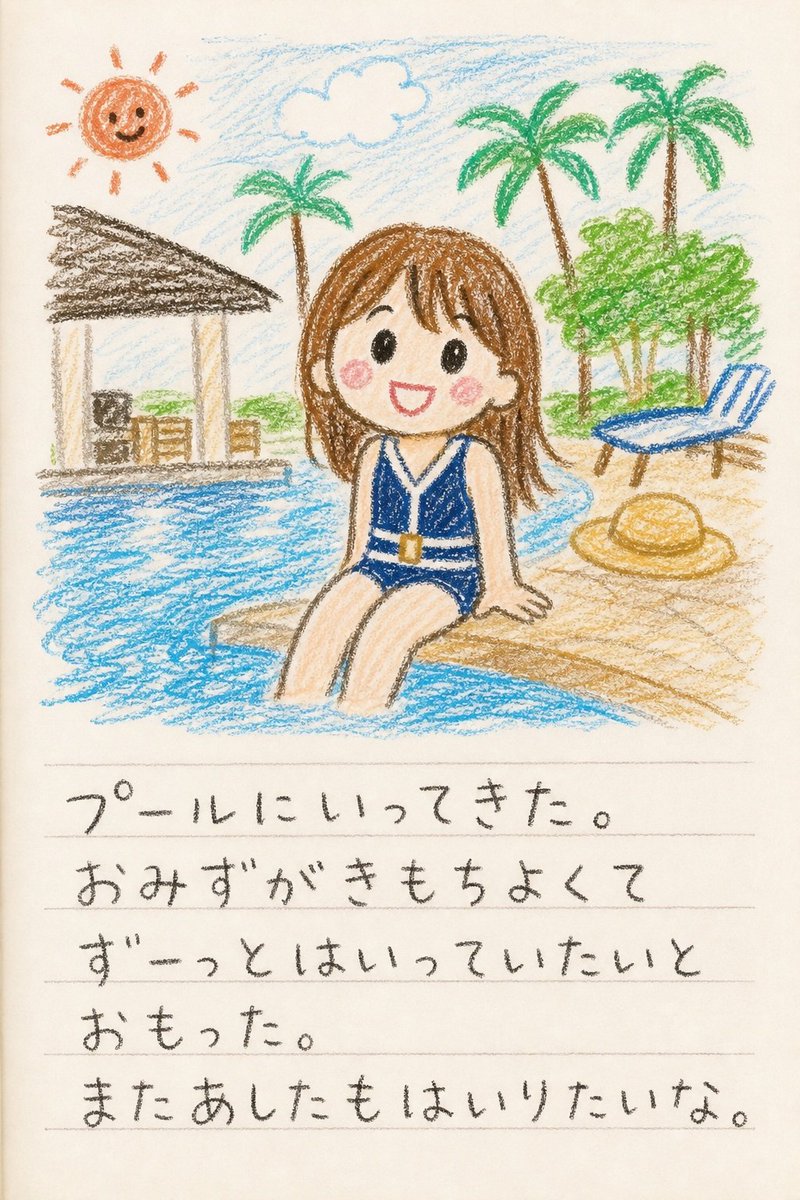 プールにいってきた。
おみずがきもちよくて
ずーっとはいっていたいと
おもった。
またあしたもはいりたいな。